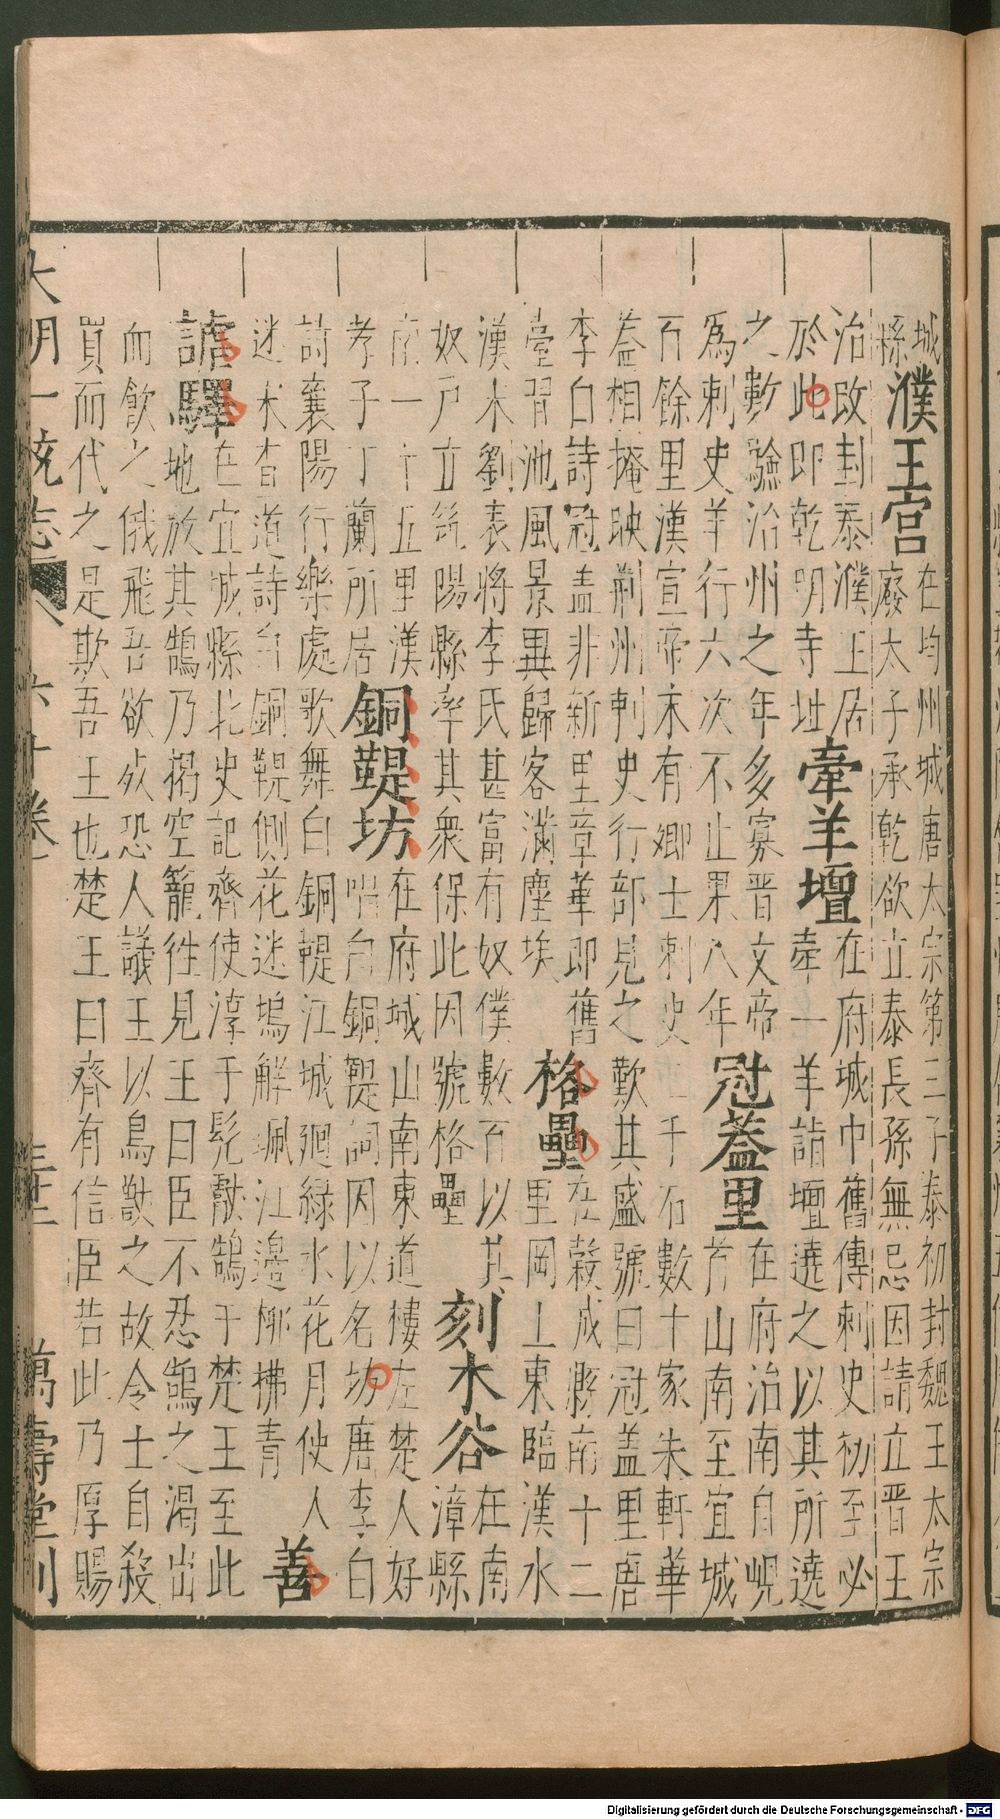 城
縣
濮王宮
在均州城唐太宗第三子泰初封魏王太宗
廢太子承乾欲立泰長孫無忌因請立晉王
治改封泰濮王居
於此即乾明寺址
牽羊壇
在府城中舊傳刺史初至必
牽一羊詣壇遶之以其所遶
之數驗治州之年多寡晉文帝
為刺史羊行六次不止果八年
冠蓋里
在府治南自峴
首山南至宜城
百餘里漢宣帝末有卿士刺史二千石數十家朱軒華
蓋相掩映荆州刺史行部見之歎其盛號曰冠盖里唐
李白詩冠盖非新里章華即舊
臺習池風景異歸客滿塵埃
格壘
在榖城縣南十二
里岡上東臨漢水
漢末劉表將李氏甚富有奴僕數百以其
奴戶立筑陽縣率其衆保此因號格壘
刻木谷
在南
漳縣
南一十五里漢
孝子丁蘭所居
銅鞮坊
在府城山南東道樓左楚人好
唱白銅鞮詞因以名坊唐李白
詩襄陽行樂處歌舞白銅鞮江城廻綠水花月使人
迷木杳道詩白銅鞮側花迷塢解珮江邊柳拂青
善
謔驛
在宜城縣北史記齊使淳于髡獻鵠于楚王至此
地放其鵠乃揭空籠徃見王曰臣不忍鵠之渴出
而飲之俄飛吾欲死恐人議王以鳥獸之故令士自殺
買而代之是欺吾王也楚王曰齊有信臣若此乃厚賜
大明一統志 六十卷 三十二 萬壽堂刊
Digitalisierung gefördert durch die Deutsche Forschungsgemeinschaft - DFG